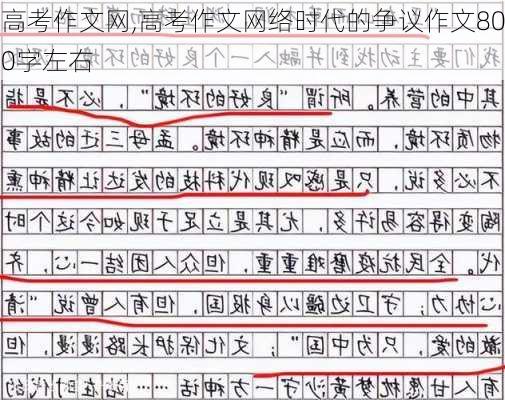 高考作文网,高考作文网络时代的争议作文80
0字左右
我们要主动找到并融入一个良好的环
其中的营养。所谓“良好的环境”，必不是指
物质环境，而应是精神环境。孟母三迁的故事
不必多说，只是感叹现代科技的发达让精神熏
陶变得容易许多，尤其是立足于现如今这个时
代。全民抗疫磨难重重，但众人团结一心，齐
心协力；守卫边疆以身报国，但有人曾说“清
澈的爱，只为中国”；文化保护长路漫漫，但
有人甘愿枕梦黄沙守一方神话……站在时代的